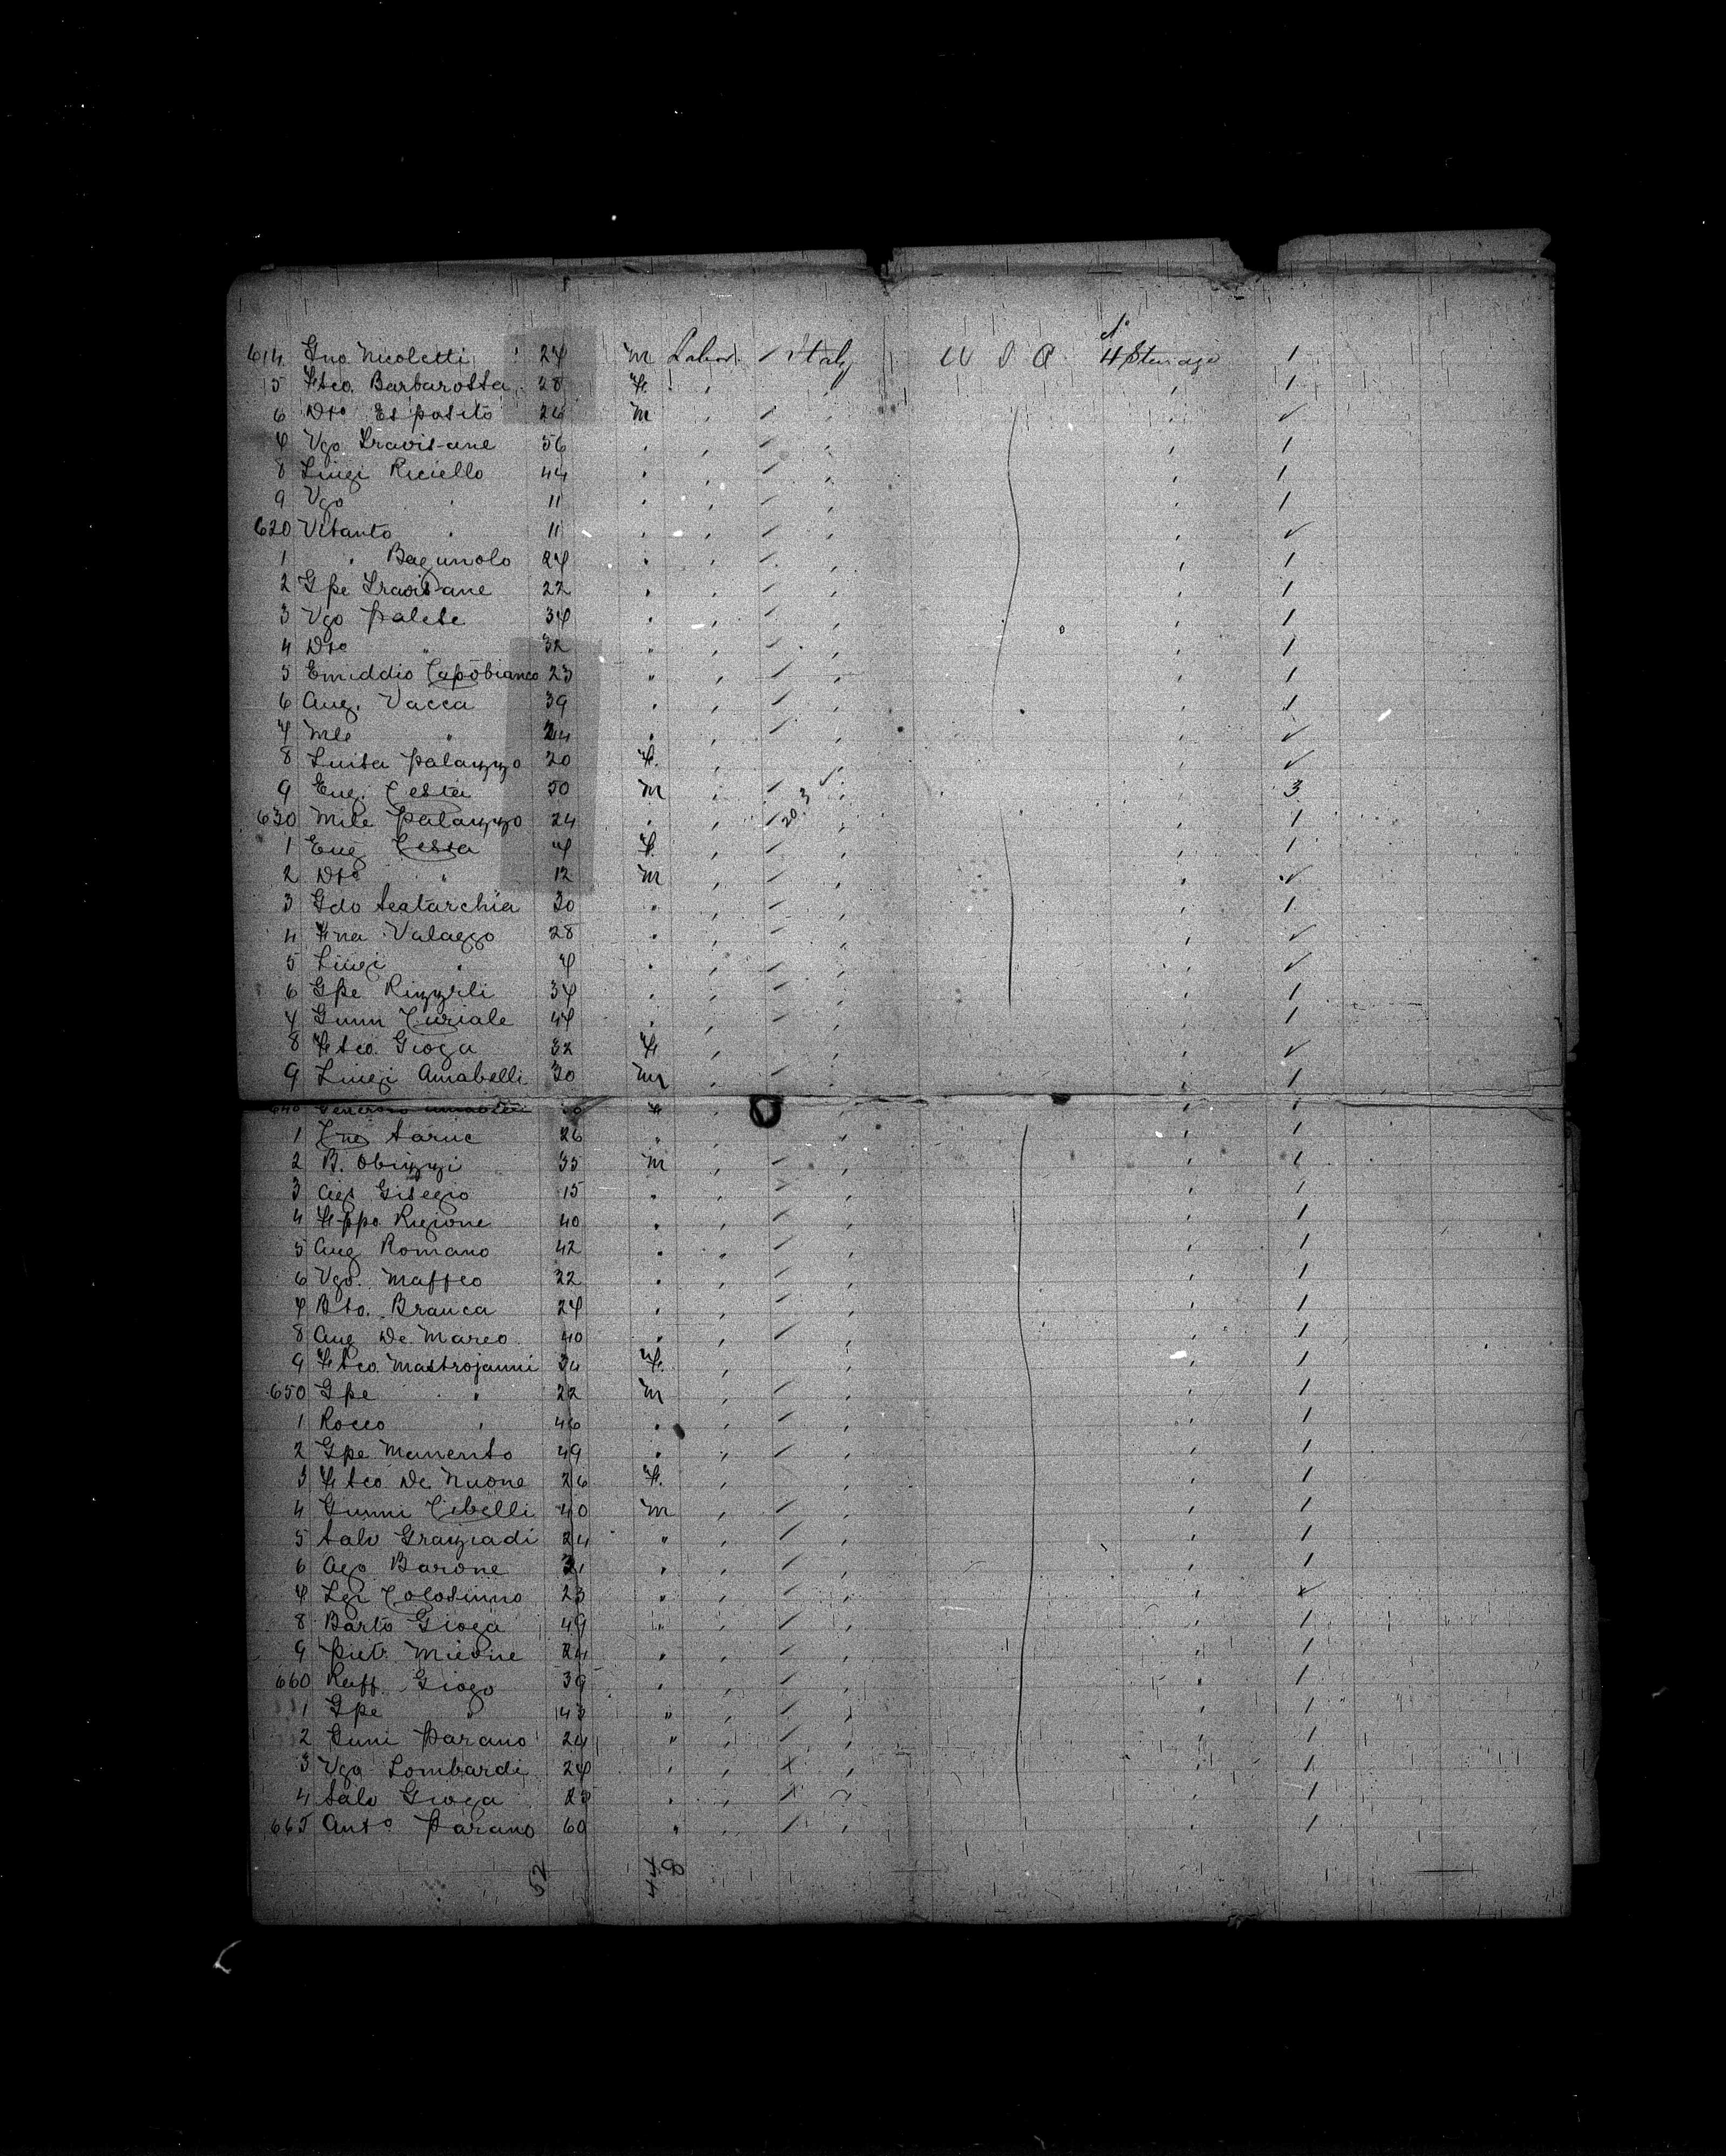 614 Gno Nicoletti 27 M Labor. / Italy U S A 4 Steerage 1
5 Fsco. Barbarossa 28 F. 1
6 Dto Esposito 26 M /
7 Vgo Travisane 56 / 1
8 Luigi Riciello 44 / 1
9 Vgo " 11 / 1
620 Vitanto " 11 /
1 " Bagunolo 27 / 1
2 Gpe Travisane 22 / 1
3 Vgo Palese 37 / 1
4 Dto " 32 " / 1
5 Emiddio Capobianco 23 " / 1
6 Aug. Vacca 39 / 1
7 Mle " /
8 Luisa Palazzo 20 F.
9 Eug. Testa 50 M / 3
630 Mile Palazzo 24 / 20.3 1
1 Eug Tessa 7 F. / 1
2 Dto " 12 M /
3 Gdo Scatarchia 30 " / 1
4 Fna Valaggo 28 /
5 Luigi " 7 /
6 Gpe Rizzili 37 / 1
7 Gunn Curiale 47 / 1
8 Fsco. Gioga 32 F /
9 Luigi Amabelli 30 M / 1
640 F 1
1 Sarne 26 " 1
2 B. Obizzi 35 M / 1
3 Gisegio 15 / 1
4 Fppo Rigione 40 / 1
5 Aug Romano 42 / 1
6 Vgo. Maffeo 22 / 1
7 Bto. Branca 27 / 1
8 Aug De Marco 40 / 1
9 Fsco Mastrojanni 34 F. 1
650 Gpe " 22 M / 1
1 Rocco " 46 / 1
2 Gpe Manerito 49 / 1
3 Fsco De Nuone 26 F. 1
4 Gunni Cibelli 40 M / 1
5 Salv Graziadi 24 " / 1
6 Ago Barone 31 / 1
7 Lgi Colosimo 23 " /
8 Barto Gioga 49 " / 1
9 Piet. Mieone 24 / 1
660 Raff. Giogo 39 / 1
1 Gpe " 43 " / 1
2 Guni Parano 24 " / 1
3 Vgo Lombardi 27 x 1
4 Salv Gioga x 1
665 Anto Parano 60 " / 1
52 44 8